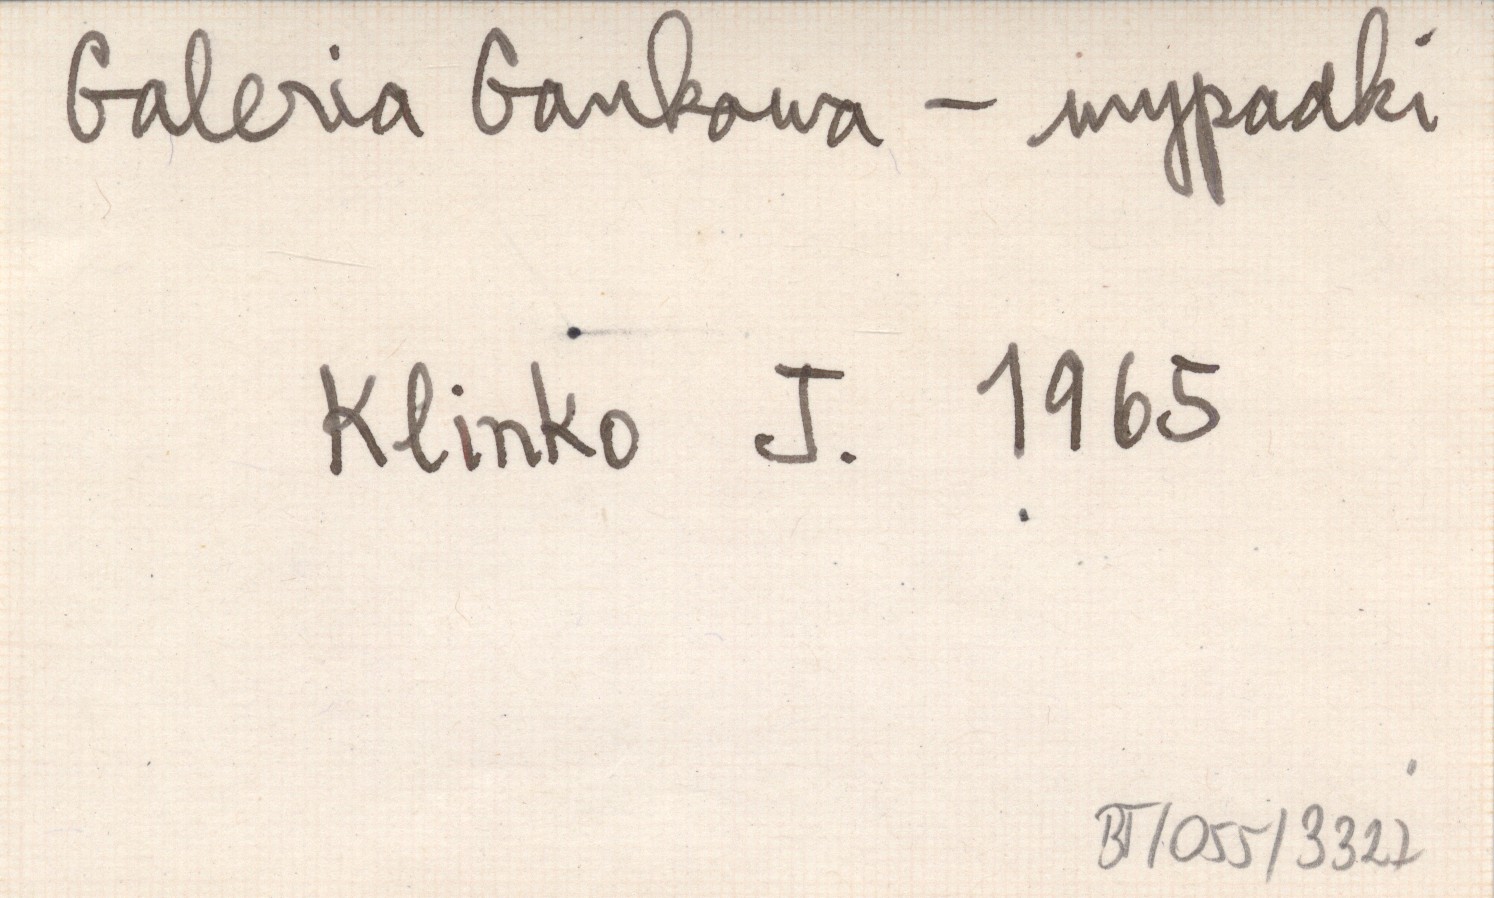 Galeria Gankowa - wypadki
Klinko J. 1965
BT/055/3327